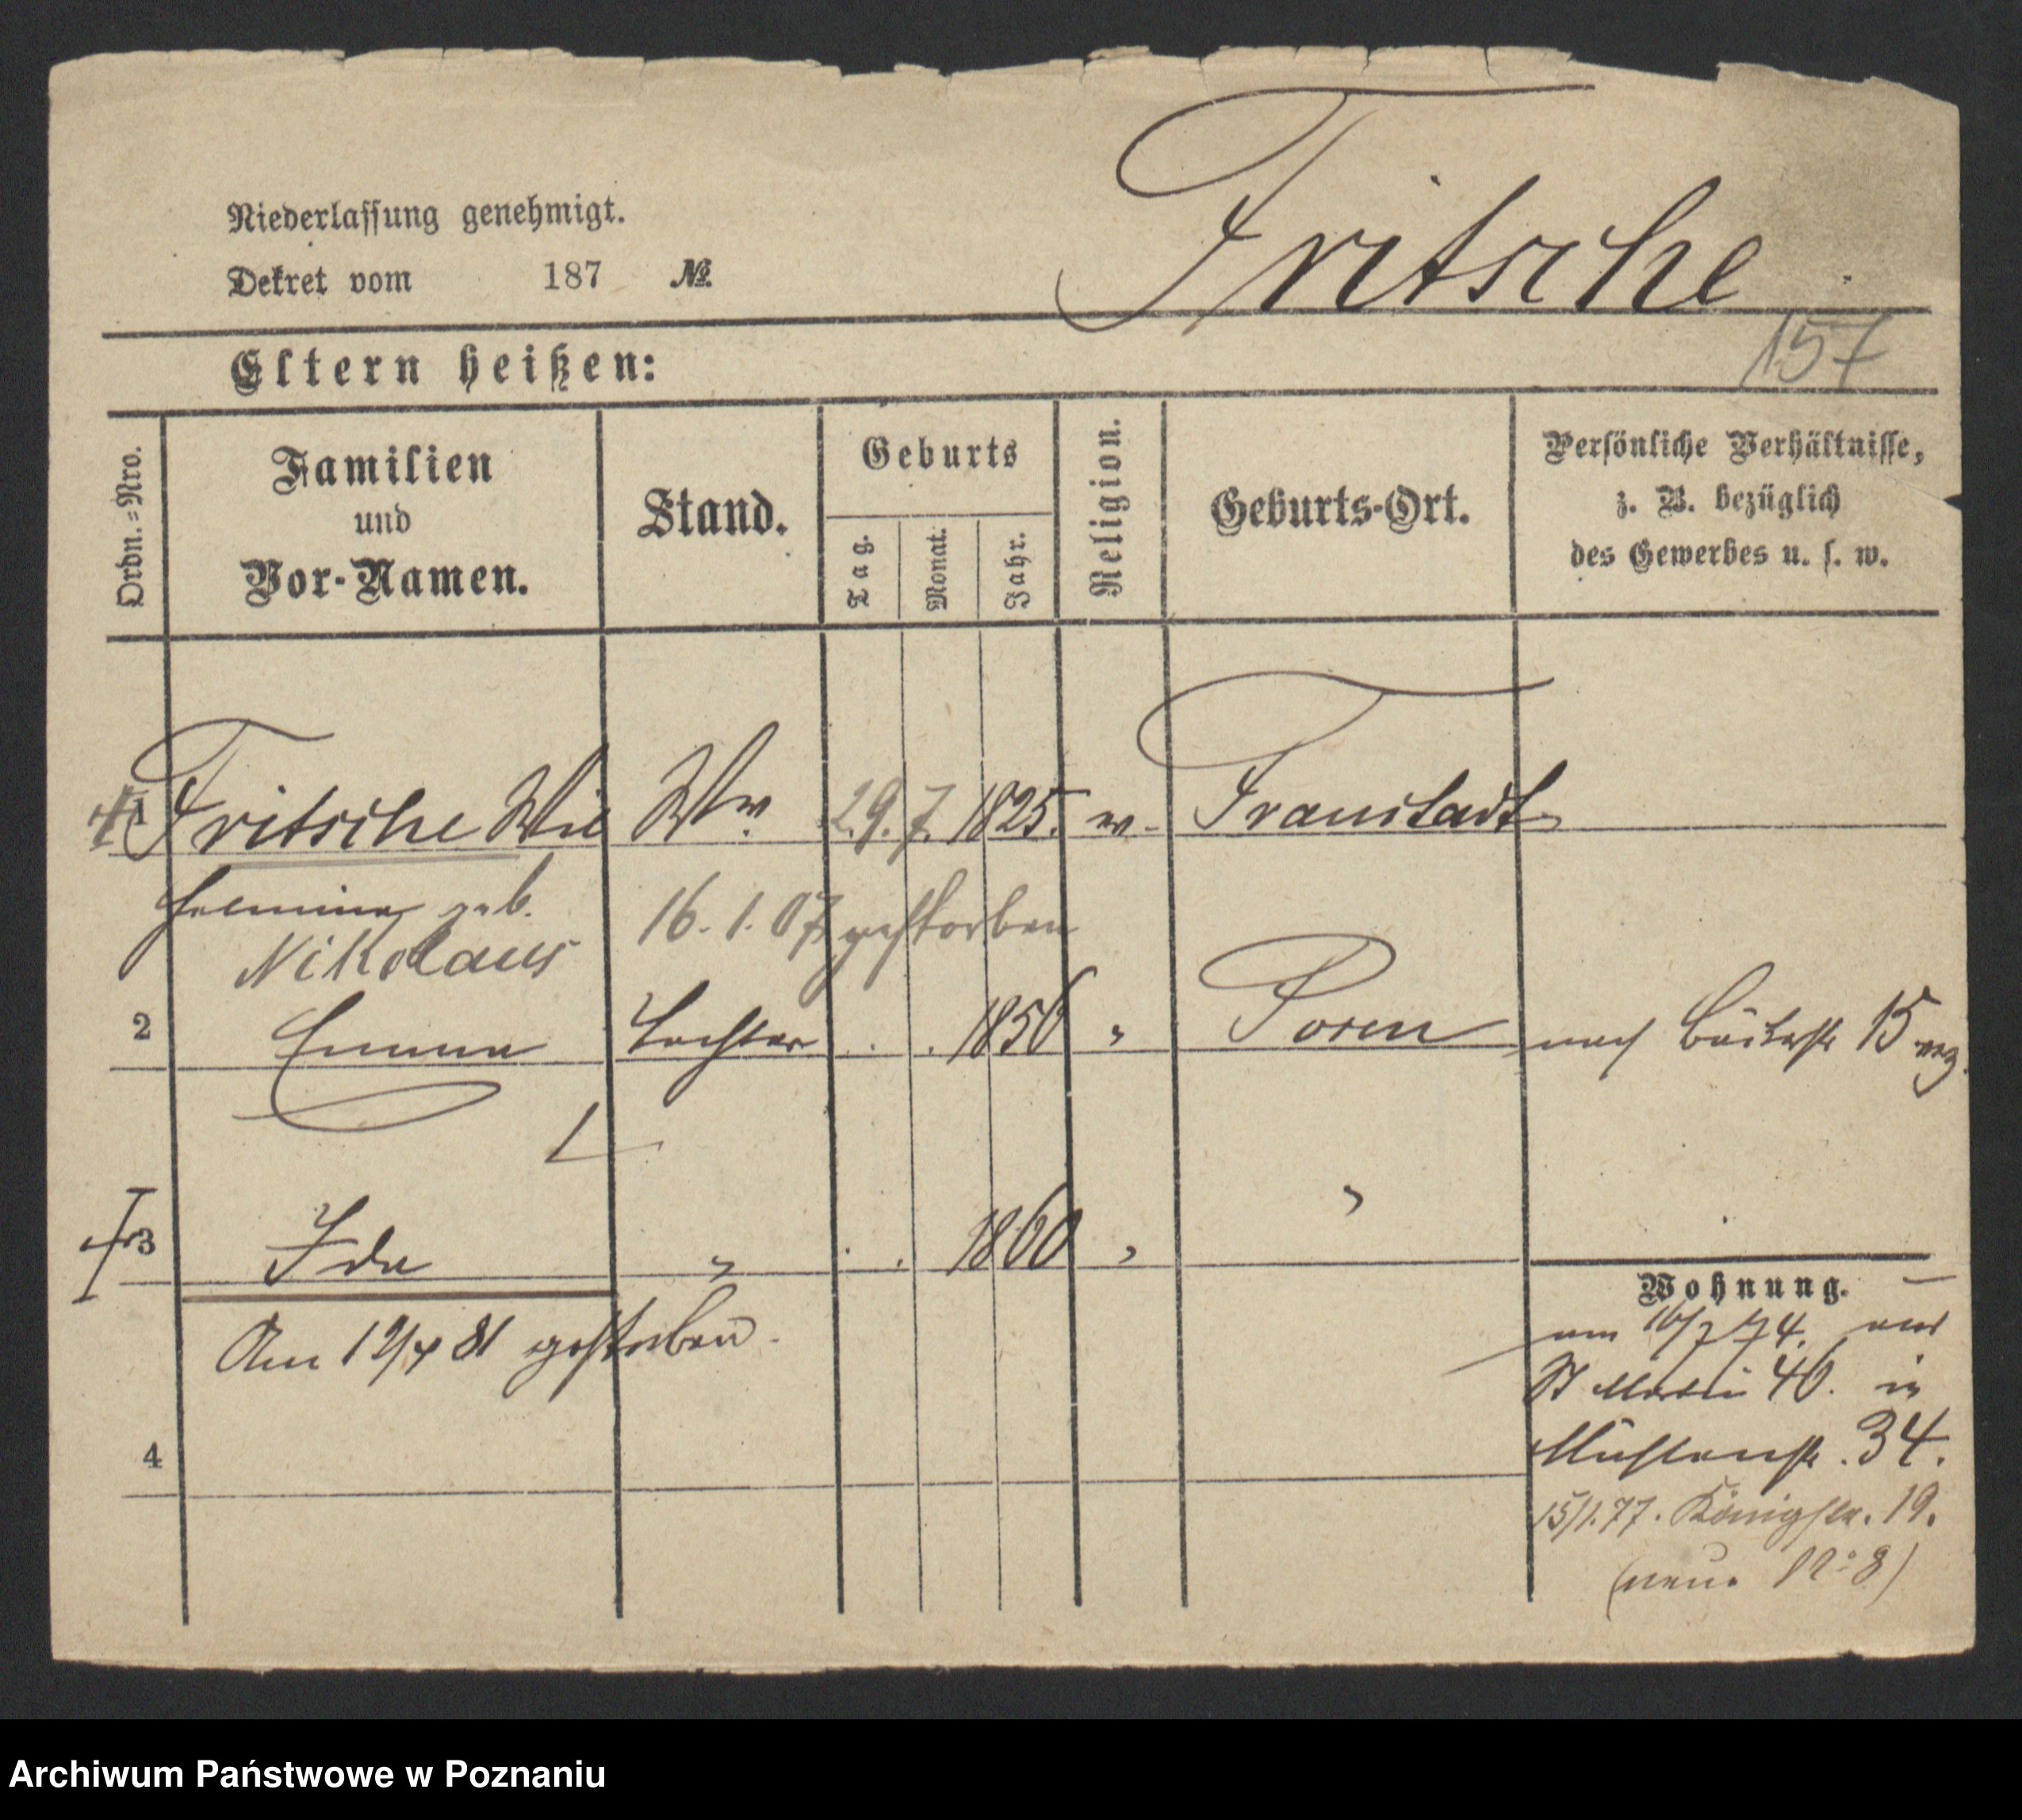 Fritsche
Niederlassung genehmigt.
Dekret vom 187 №
157
Eltern heißen:
Ordn.=Nro.
Familien
und
Vor-Namen.
Stand.
Geburts
Tag.
Monat.
Jahr.
Religion.
Geburts-Ort.
Persönliche Verhältnisse,
z. B. bezüglich
des Gewerbes u. s. w.
1 Fritsche Wil Ww 29. 7. 1825. Fraustadt
helmine geb.
Nikolaus
16. 1. 07 gestorben
2 Emma Tochter . . 1856 " Posen nach 15
3 Ida " . . 1860 " "
Am 12/4 81 gestorben.
Wohnung.
am 16/7 74. aus
St Martin 46. in
Mühlenstr. 34.
15/1. 77. Königstr. 19.
(neue No 8)
4
Archiwum Państwowe w Poznaniu